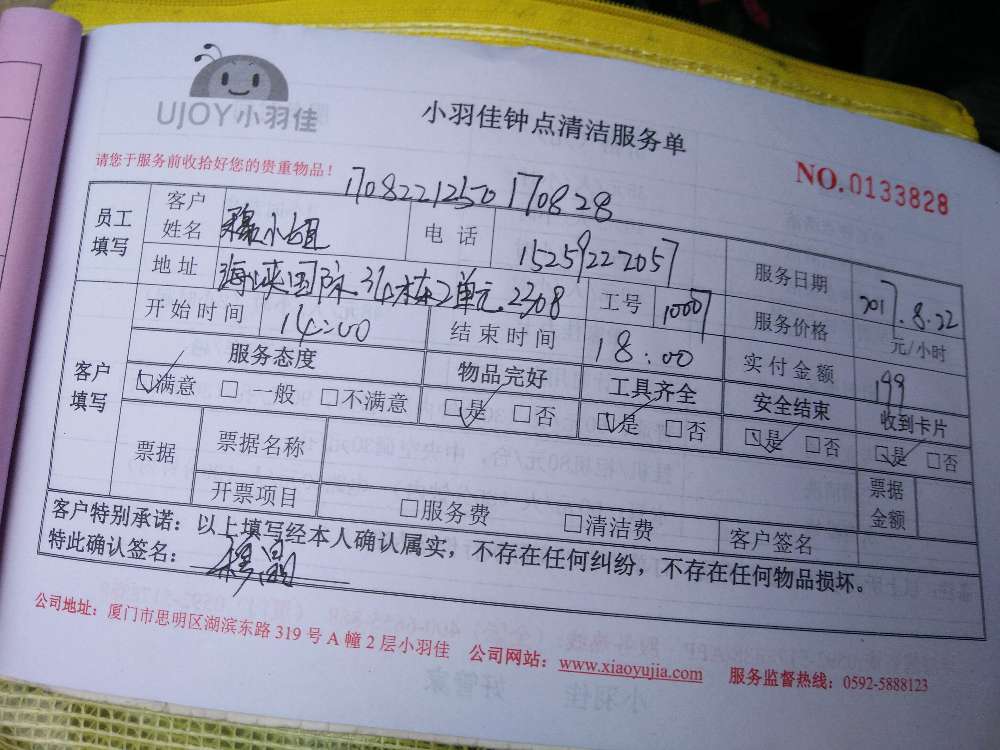 UJOY小羽佳
小羽佳钟点清洁服务单
请您于服务前收拾好您的贵重物品！
NO.0133828
17082212501 70828
员工填写 客户姓名 穆小姐 电话 15259222057 服务日期 2017.8.22
地址 海峡国际34栋2单元.2308 工号 10007 服务价格 元/小时
开始时间 14:00 结束时间 18:00 实付金额 199
客户填写 服务态度 物品完好 工具齐全 安全结束 收到卡片
☑满意 □一般 □不满意 ☑是 □否 ☑是 □否 ☑是 □否 ☑是 □否
票据 票据名称 票据金额
开票项目 □服务费 □清洁费 客户签名
客户特别承诺：以上填写经本人确认属实，不存在任何纠纷，不存在任何物品损坏。
特此确认签名：
公司地址：厦门市思明区湖滨东路 319 号 A 幢 2 层小羽佳 公司网站：www.xiaoyujia.com 服务监督热线：0592-5888123